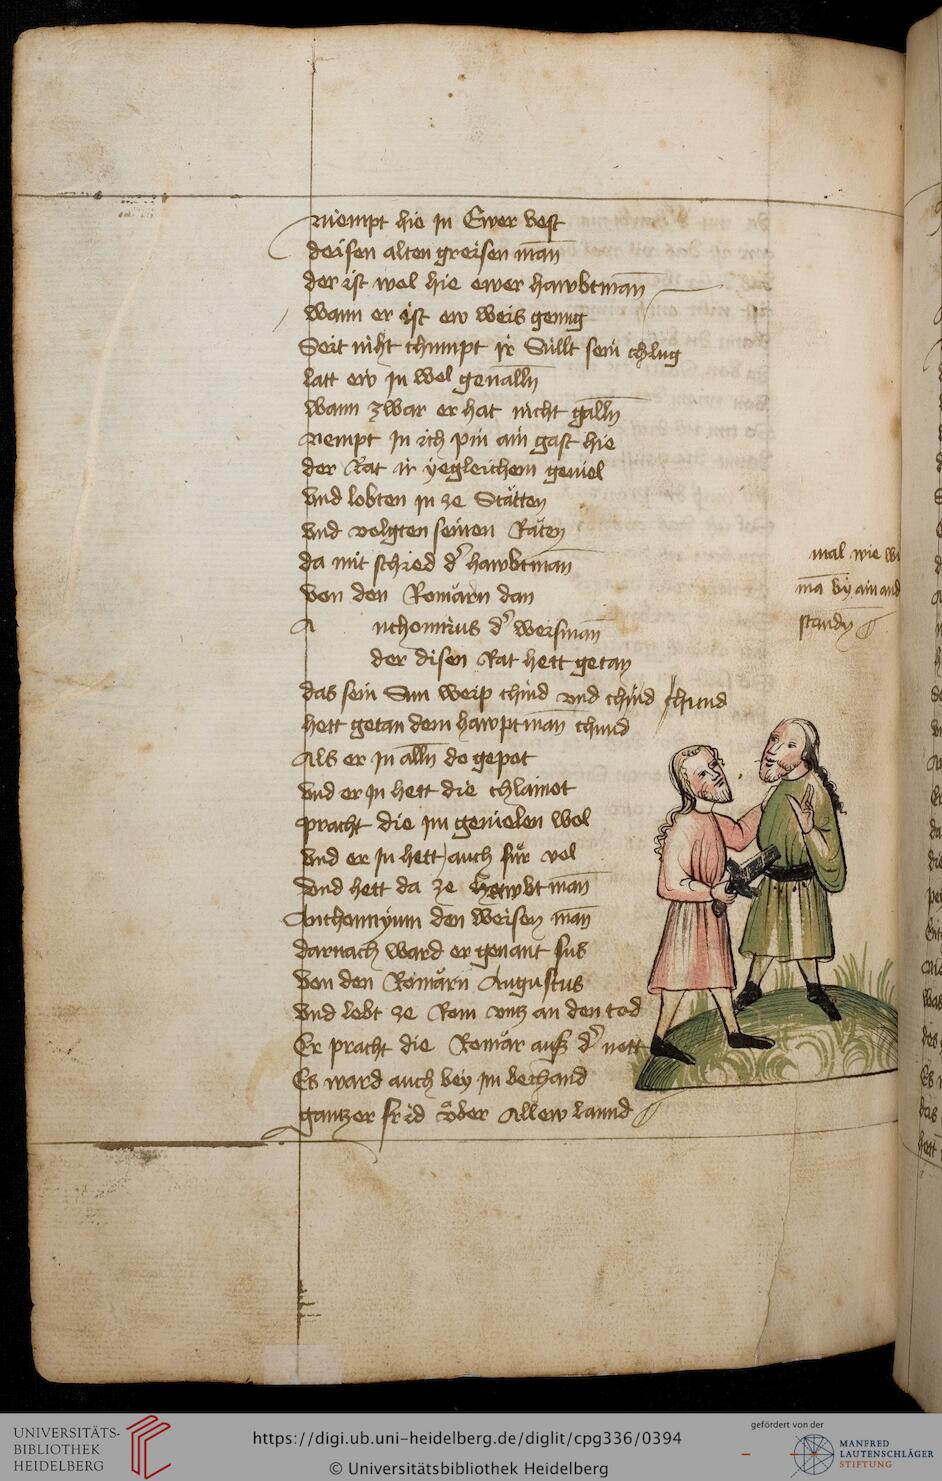 Niempt hie in Ewer vest
deisen alten greisen man̄
der ist wol hie ewer hawbtman̄
wann er ist ew weis genug
Seit niht chumpt ir Süllt sein chlug
latt ew In wol genalln̄
wann zwar er hat nicht galln̄
nempt In ich pin ain gast hie
der Rat ir yegleichem geuiel
vnd lobten in ze Stätten
vnd volgten seinen Räten
da mit schied d' hawbtman̄
von den Romärn dan
A nthonnius d' weisman̄
der disen Rat hett getan
das sein Sun weip chind vnd chind chund
hett getan dem hawptman̄ chund
Als er In alln̄ do gepot
vnd er In hett die chlainot
pracht die im geuielen wol
vnd er In hett auch für vol
vnd hett da ze hawbtman̄
Anthonnyum den weisen man̄
darnach ward er genant sus
von den Romärn Augustus
vnd lebt ze Rom vntz an den tod
Er pracht die Romär ausz d' nott
Es ward auch bey im dechand
gantzer frid vber Allew lannd
mal wie
man̄ by ain and
standn̄
UNIVERSITÄTS-
BIBLIOTHEK
HEIDELBERG
https://digi.ub.uni-heidelberg.de/diglit/cpg336/0394
© Universitätsbibliothek Heidelberg
gefördert von der
MANFRED
LAUTENSCHLÄGER
STIFTUNG